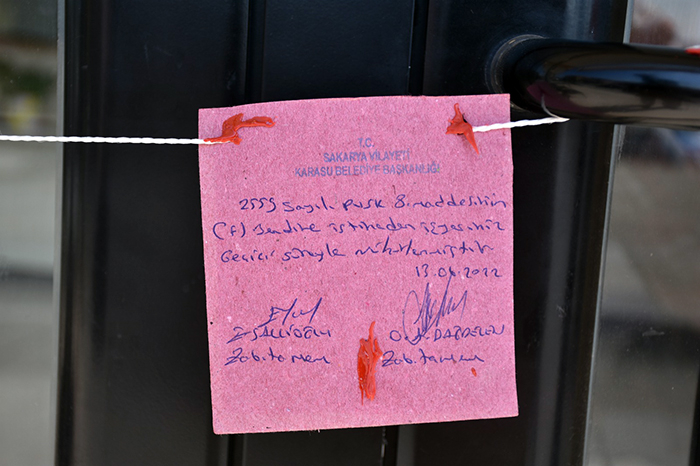 T.C.
SAKARYA VİLAYETİ
KARASU BELEDİYE BAŞKANLIĞI
2559 Sayılı PVSK 8. maddesinin
(f) bendine istinaden işyeriniz
Geçici süreyle mühürlenmiştir
13.06.2022
Zabıta mem
Zabıta mem